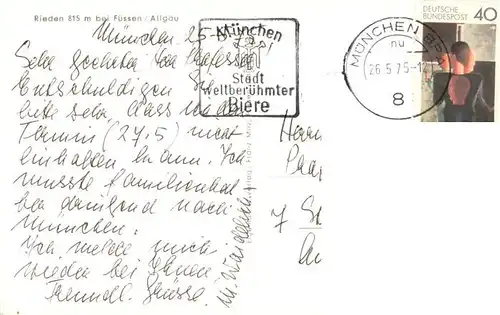 Rieden 815 m bei Füssen / Allgäu
München 25.
Sehr geehrter Herr Professor
Entschuldigen Sie
bitte sehr, dass ich den
Termin (27.5) nicht
einhalten kann. Ich
musste familienhal
ber dringend nach
München.
Ich melde mich
wieder bei Ihnen
Freundl. Grüsse.
München
Stadt
weltberühmter
Biere
DEUTSCHE
BUNDESPOST
40
MÜNCHEN BPA
nu
26.5.75-12
8
Herrn
7 St